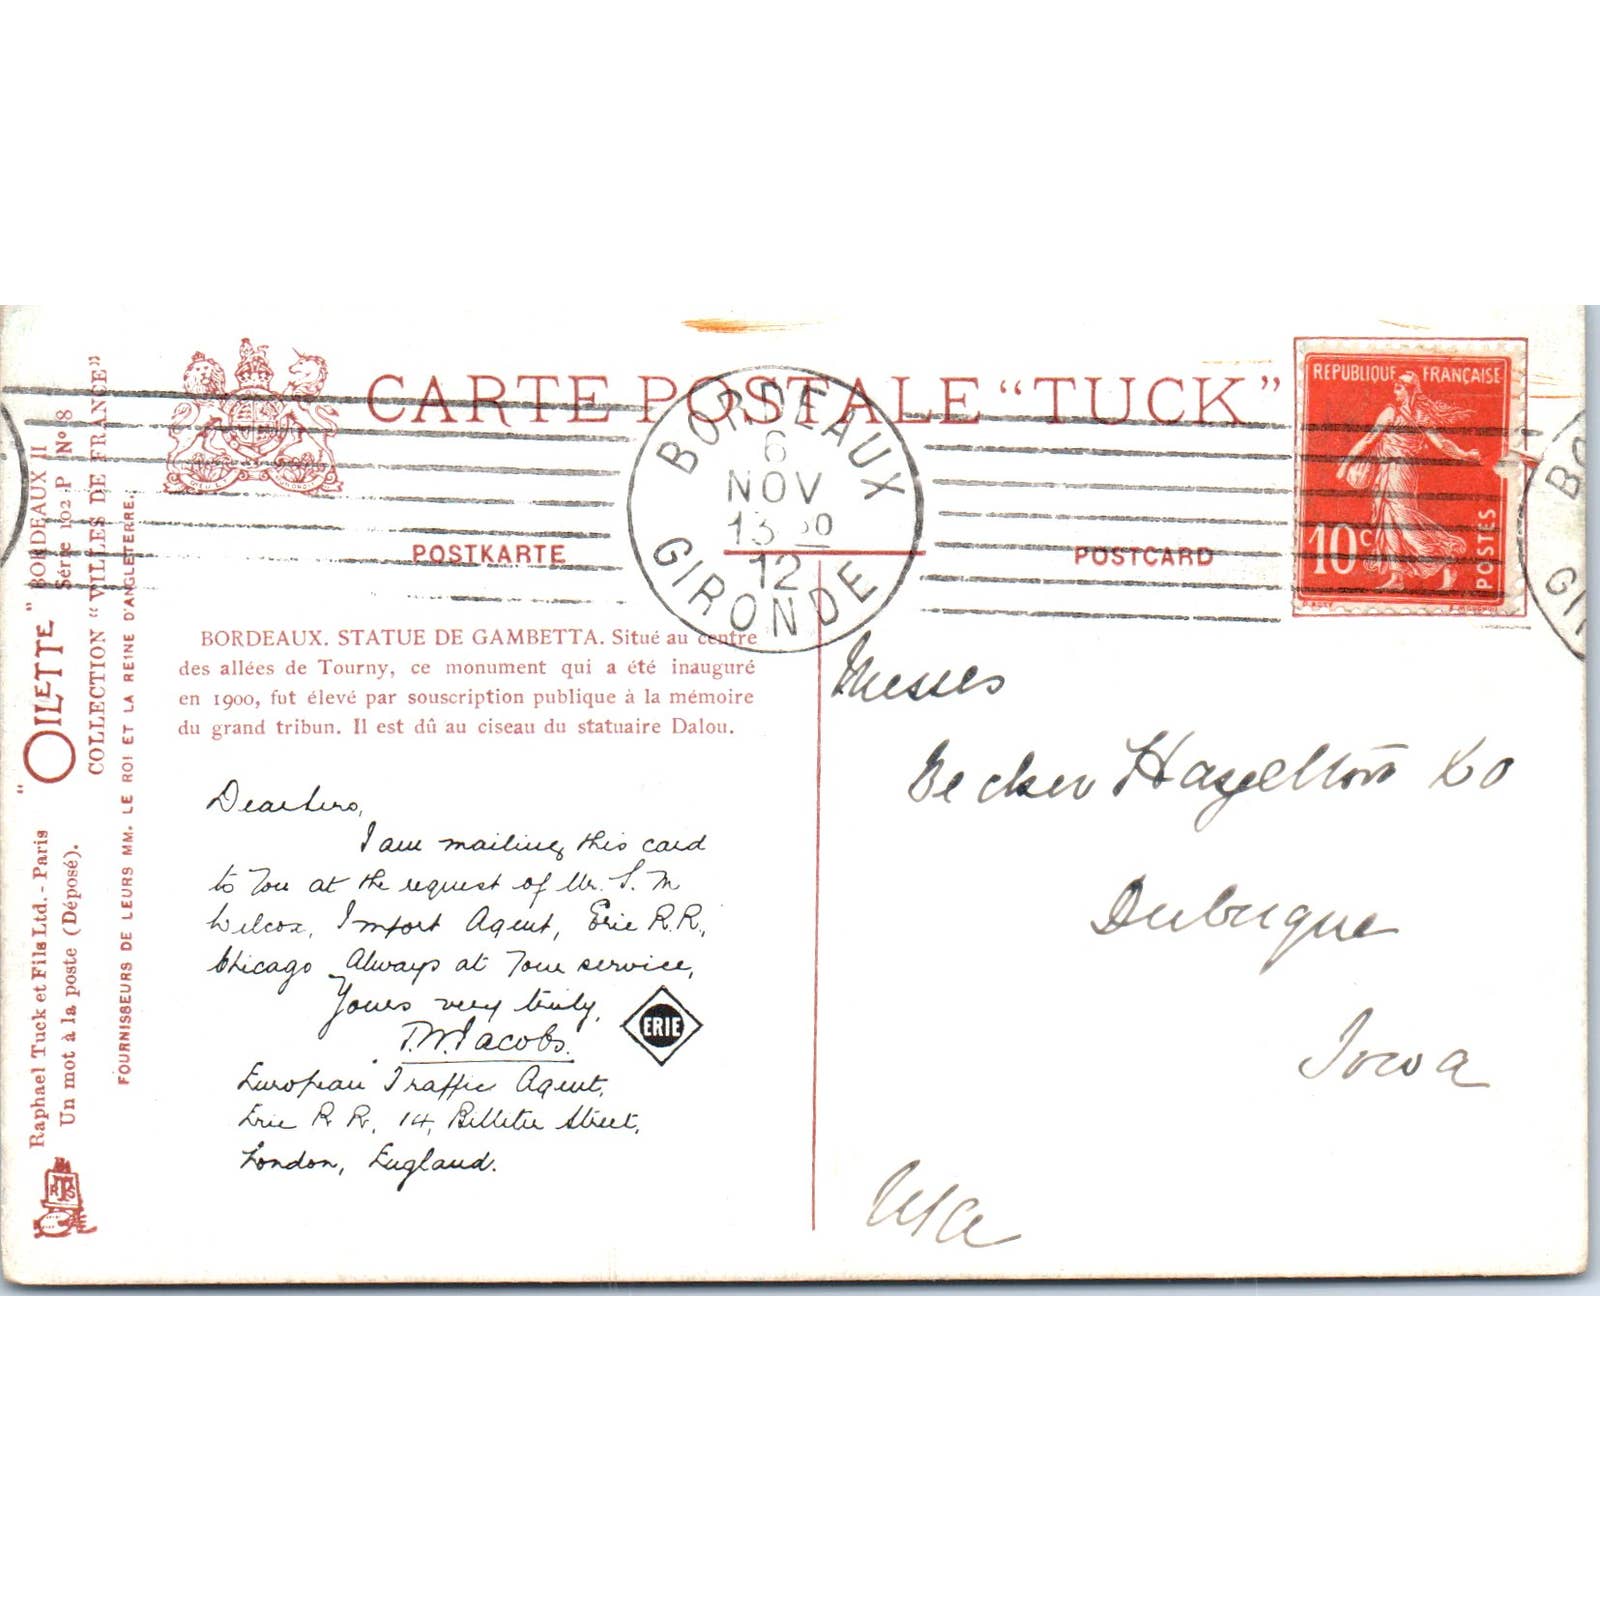 CARTE POSTALE “TUCK”
POSTKARTE
POSTCARD
BORDEAUX
6
NOV
12
GIRONDE
REPUBLIQUE FRANÇAISE
10 C
POSTES
BO
GI
“OILETTE” BORDEAUX II
Série 102 P Nº 8
COLLECTION “VILLES DE FRANCE”
FOURNISSEURS DE LEURS MM. LE ROI ET LA REINE D'ANGLETERRE.
Raphael Tuck et Fils Ltd. - Paris
Un mot à la poste (Déposé).
BORDEAUX. STATUE DE GAMBETTA. Situé au centre
des allées de Tourny, ce monument qui a été inauguré
en 1900, fut élevé par souscription publique à la mémoire
du grand tribun. Il est dû au ciseau du statuaire Dalou.
Dear Sirs,
I am mailing this card
to You at the request of Mr. S. M
Wilcox, Import Agent, Erie R.R.,
Chicago Always at Your service,
Yours very truly,
T.W. Jacobs.
ERIE
European Traffic Agent,
Erie R R, 14, Billiter Street,
London, England.
Messrs
Becker Hazelton Co
Dubuque
Iowa
USA